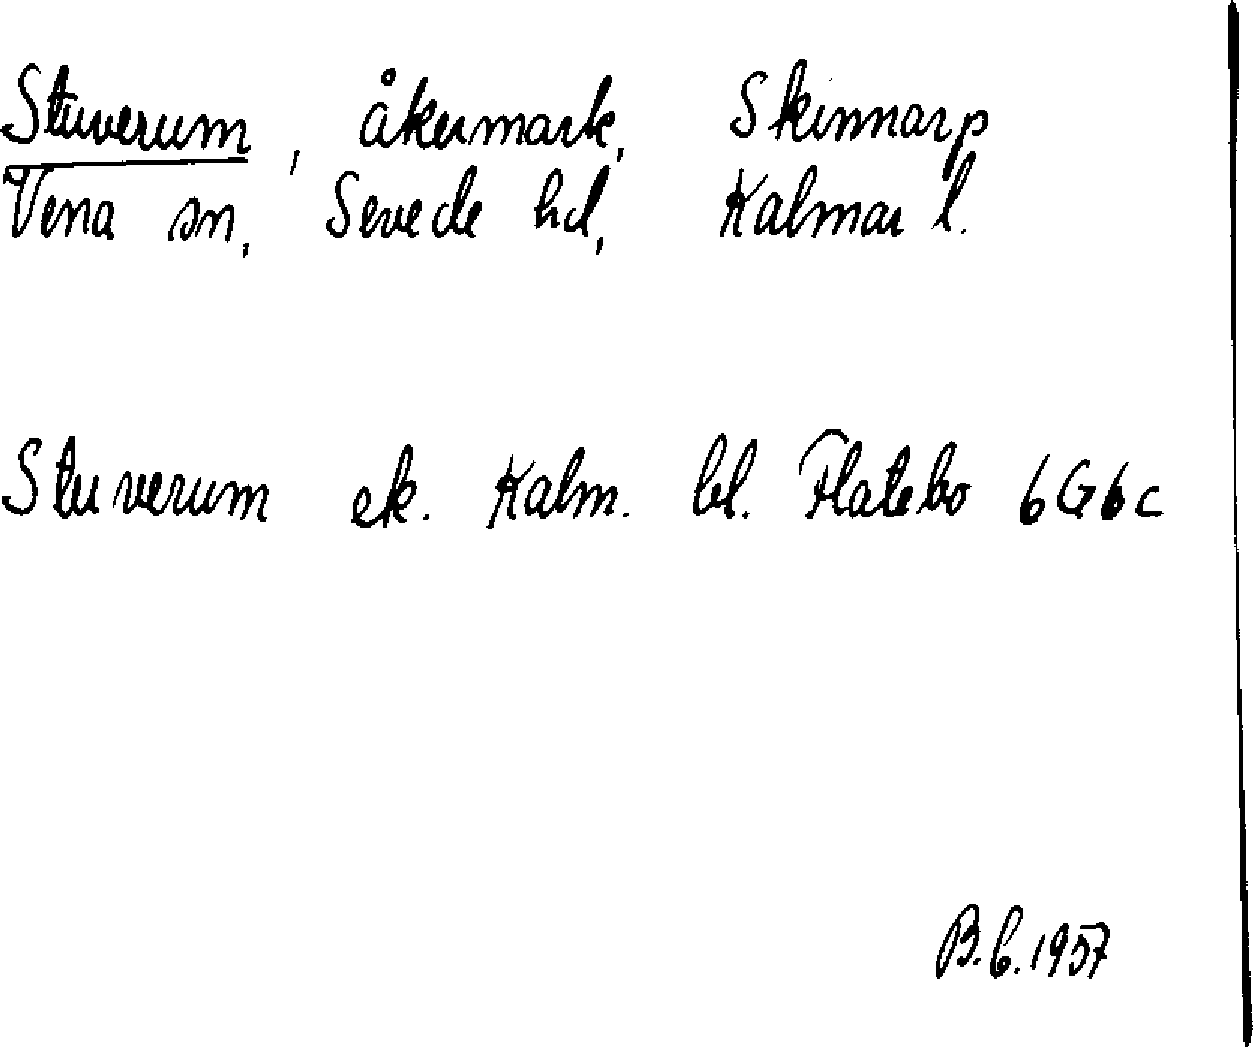 Stuverum, åkermark, Skinnarp
Vena sn, Sevede hd, Kalmar l.
Stuverum ek. Kalm. bl. Flatebo 6G6c
B.b. 1957